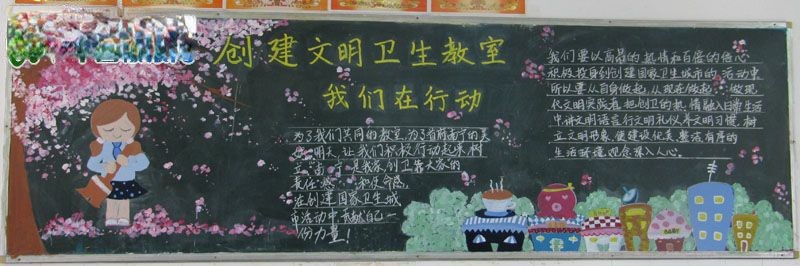 创建文明卫生教室
我们在行动
为了我们共同的教室,为了省前面子的美
好明天,让我们积极行动起来,树
是我家,创卫靠大家的
在创建国家卫生城
市活动中贡献自己一
份力量!
我们要以高昂的热情和百倍的信心
积极投身到创建国家卫生城市的活动中
所以要从自身做起,从现在做起,做现
代文明实践者,把创卫的热情融入日常生活
中,讲文明语言行文明礼仪养文明习惯,树
立文明形象,使建设优美整洁有序的
生活环境观念深入人心。